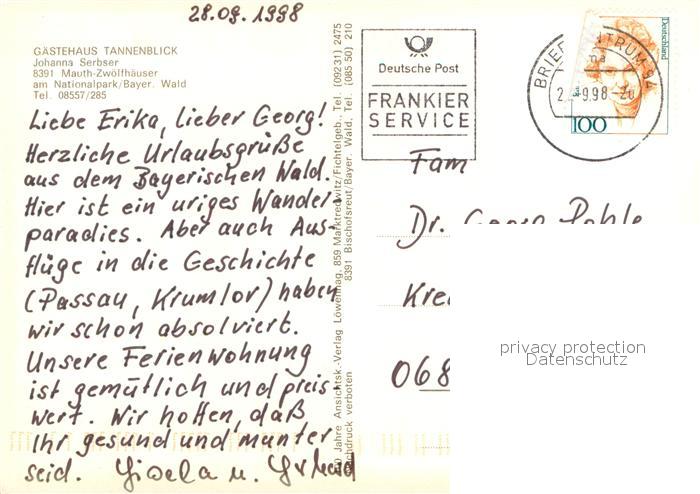 28.09.1998
GÄSTEHAUS TANNENBLICK
Johanna Serbser
8391 Mauth-Zwölfhäuser
am Nationalpark/Bayer. Wald
Tel. 08557/285
Liebe Erika, lieber Georg!
Herzliche Urlaubsgrüße
aus dem Bayerischen Wald.
Hier ist ein uriges Wander-
paradies. Aber auch Aus-
flüge in die Geschichte
(Passau, Krumlov) haben
wir schon absolviert.
Unsere Ferienwohnung
ist gemütlich und preis-
wert. Wir hoffen, daß
Ihr gesund und munter
seid. Gisela u.
Jahre Ansichtsk.-Verlag Löwenhag, 859 Marktredwitz/Fichtelgeb., Tel. (09231) 2475
8391 Bischofsreut/Bayer. Wald, Tel. (08550) 210
verboten
Deutsche Post
FRANKIER
SERVICE
BRIEFZENTRUM 94
Deutschland
100
Fam
Dr. Georg
Kre
068
privacy protection
Datenschutz